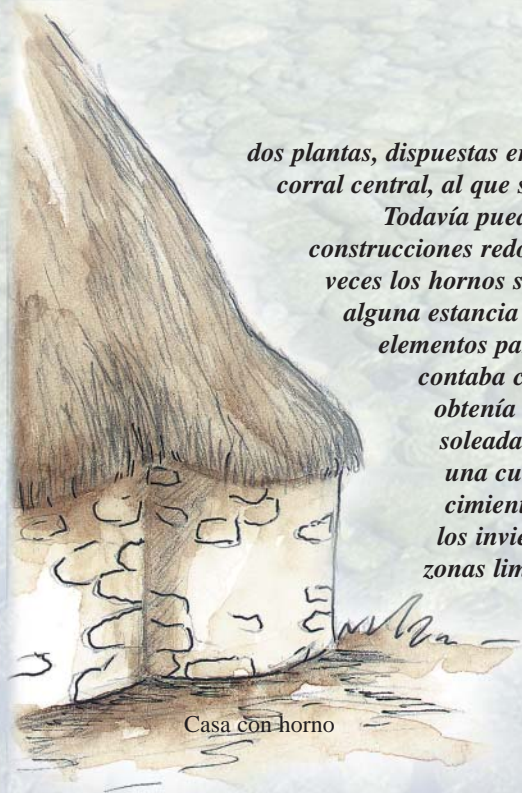 dos plantas, dispuestas en
corral central, al que s
Todavía pued
construcciones redo
veces los hornos s
alguna estancia
elementos pa
contaba c
obtenía
soleada
una cu
cimient
los invie
zonas lim
Casa con horno